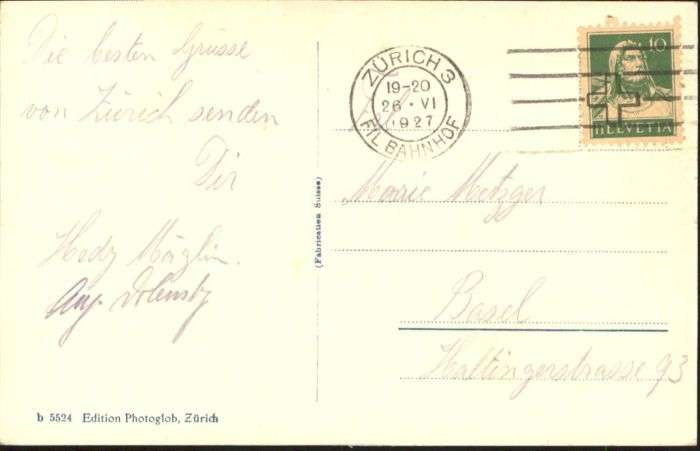 Die besten Grüsse
von Zürich senden
Dir
Hedy
Aug.
b 5524 Edition Photoglob, Zürich
(Fabrication Suisse)
ZÜRICH 3
19-20
26 · VI
1927
FIL. BAHNHOF
10
HELVETIA
Marie Metzger
Basel
Haltingerstrasse 93